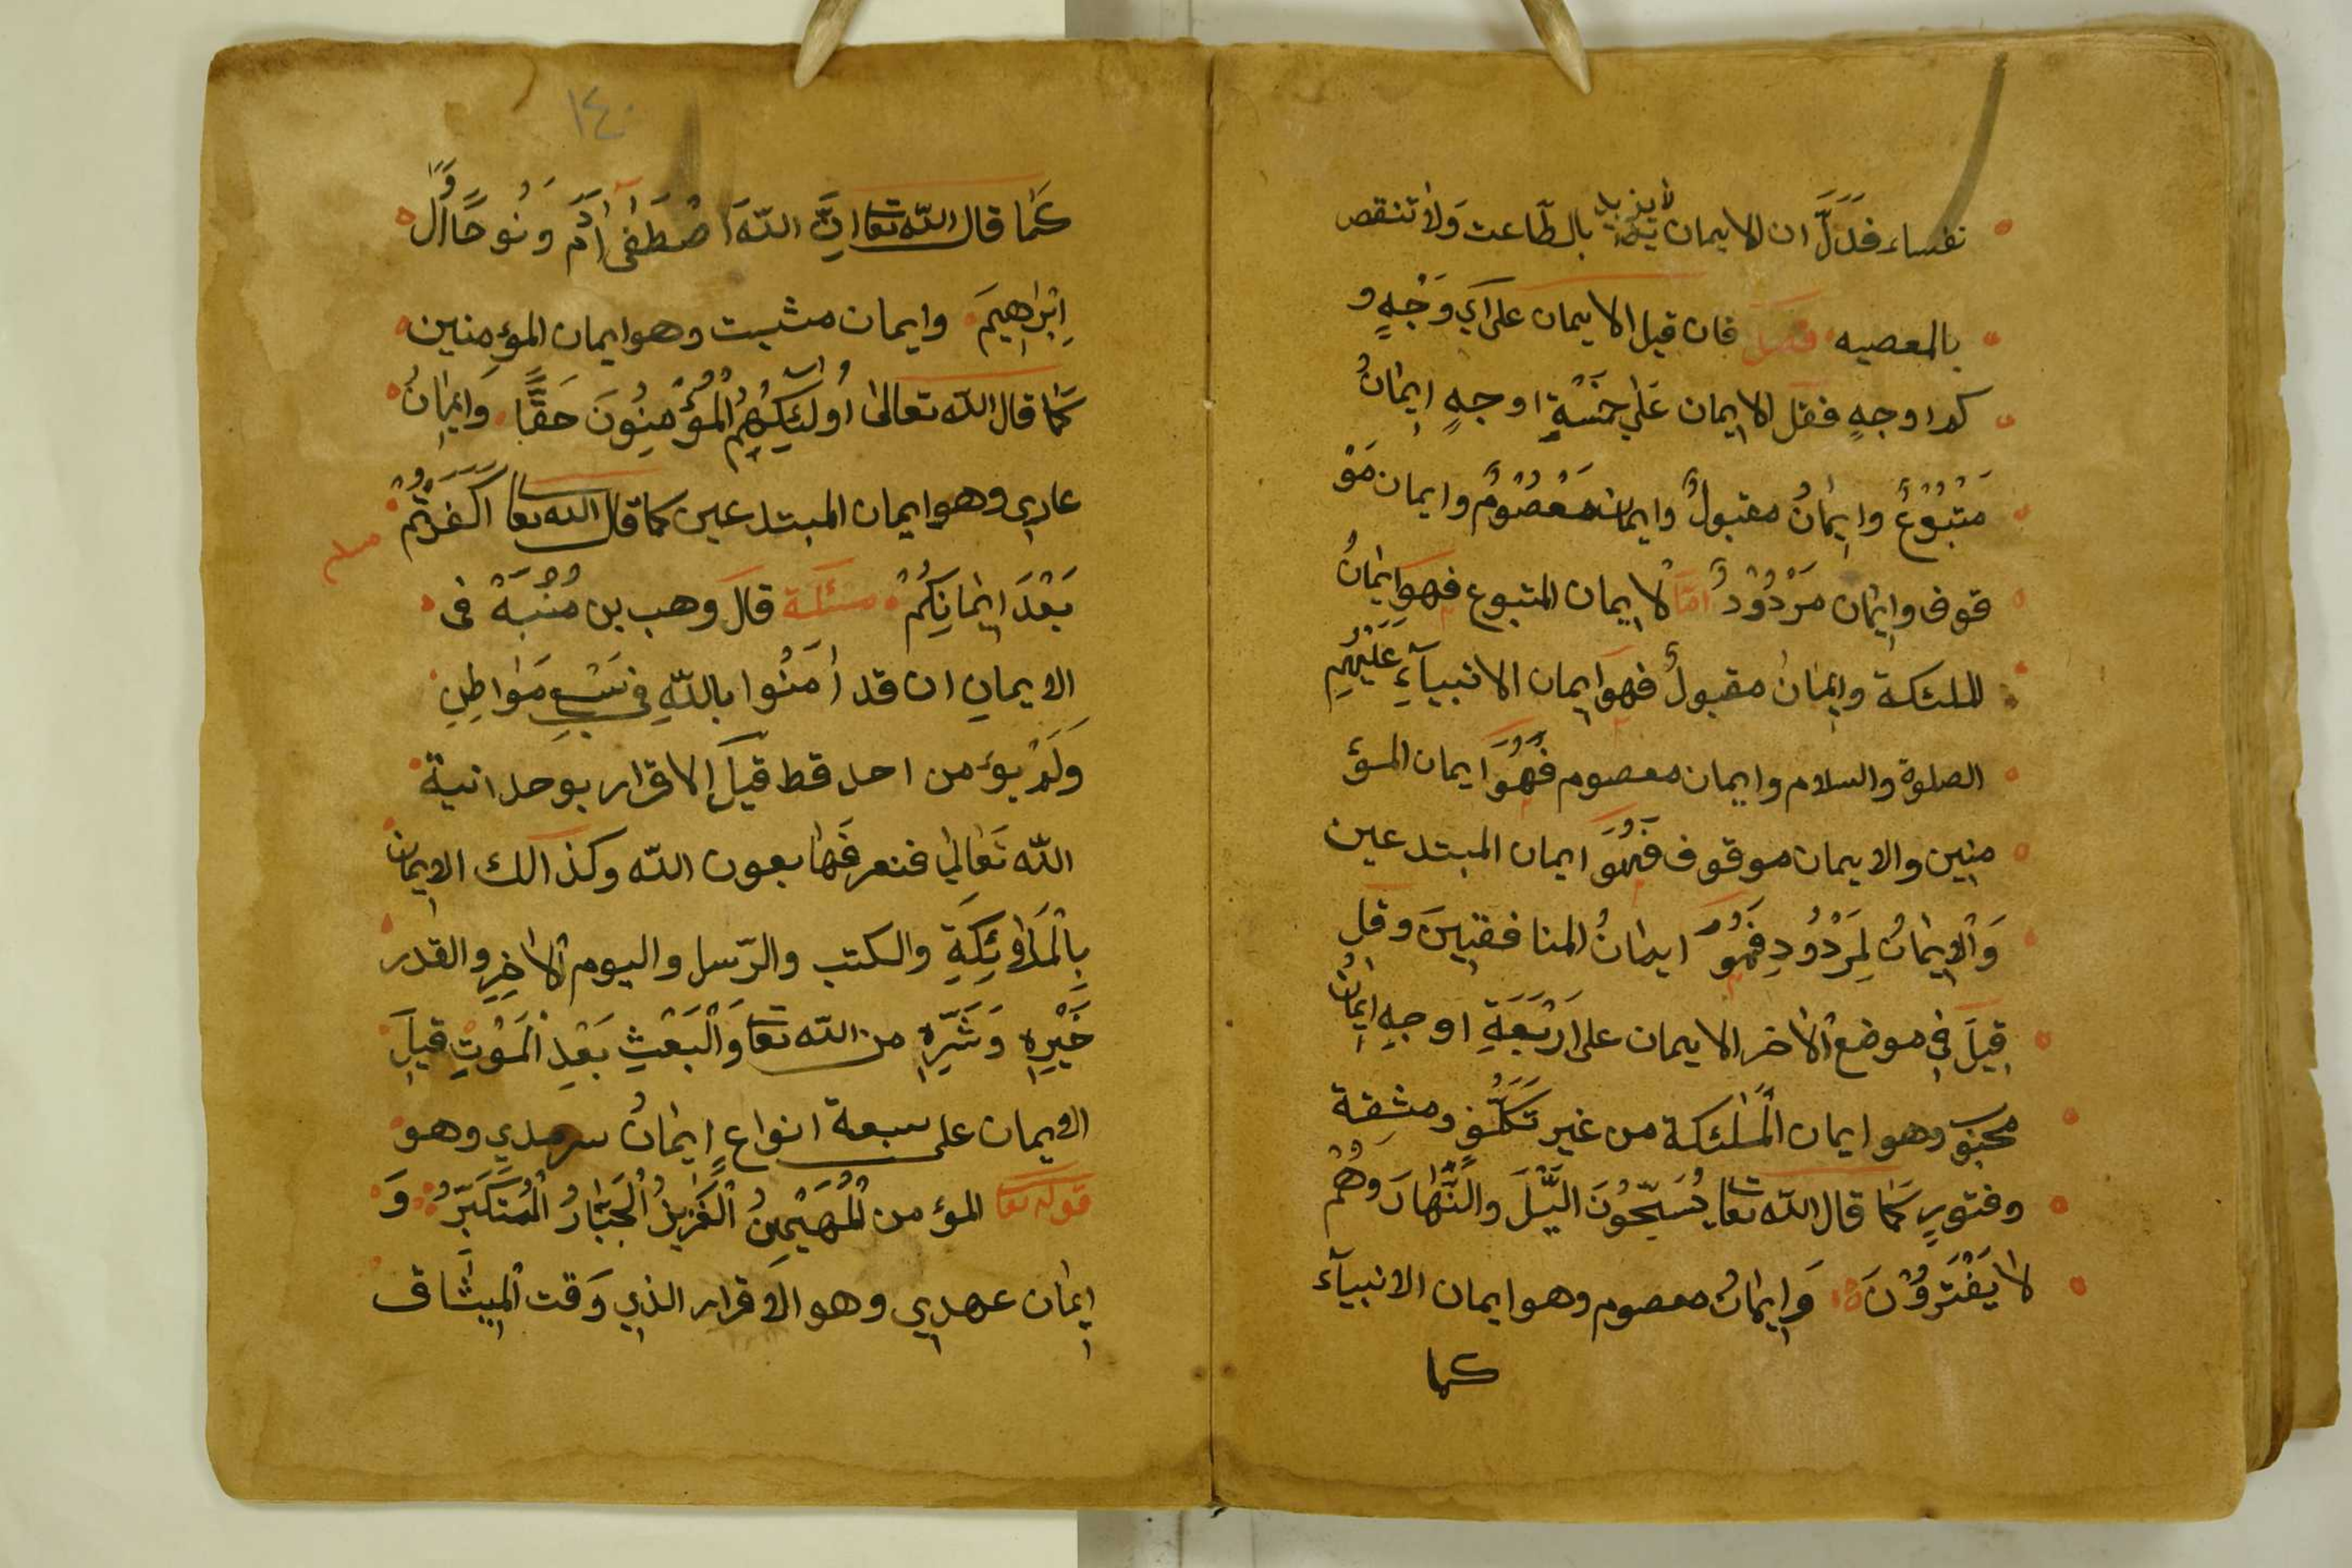 نفساء فَدَلَّ ان الايمان لا يزيد بالطّاعت وَلا تنقص
بالمعصيه فصل فان قيل الايمان على اَيِ وَجْهٍ و
كم اوجهٍ فقل الايمان عَلي خَمْسَةِ اوجهٍ اِيمانُ
مَتْبُوْعٌ وايمانُ مقبولٌ وايمان مَعْصُوْمٌ وايمان مَوْ
قوف وايمان مَرْدُوْدٌ امّا الايمان المتبوع فهو ايمانُ
الملئكة وايمانُ مقبولٌ فهو ايمان الانبيآءِ عَلَيْهِمِ
الصلوة والسلام وايمان معصوم فَهُوَ ايمان المؤ
منين والايمان موقوف فَهُوَ ايمان المبتدعين
وَالايمانُ لمَرْدُودِ فَهُوَ ايمانُ المنافقينَ وقل
قِيلَ في موضع الاخر الايمان على اَرْبَعَةِ اوجهِ ايمانُ
وهو ايمان الملئكة من غير تَكَلُّفِ ومشقة
وفتورٍ كَمَا قال الله تعا يُسَبّحُونَ الَّيْلَ والنَّهَارَ وَهُمْ
لا يَفْتَرُوْنَ وَايمانُ معصوم وهو ايمان الانبيآء
كما
١٤٠
كَمَا قال الله تعا اِنَّ اللّهَ اصْطَفٰى اٰدَمَ وَنُوحًا وَّاٰلَ
اِبْرَاهِيمَ وايمان مثبت وهو ايمان المؤمنين
كَمَا قال الله تعالى اُولٰئِكَ هُمُ الْمُؤْمِنُونَ حَقًّا وَايمانُ
عاري وهو ايمان المبتدعين كما قال الله تعا اَكَفَرْتُمْ
بَعْدَ اِيمَانِكُمْ مسئلة قالَ وهب بن مُنْبَةْ فى
الايمانِ ان قد اٰمَنُوا باللّهِ في مَواطِنِ
وَلَمْ يؤمن احد قط قيلَ الاقرار بوحدانية
اللّه تَعَالي فنعرفَها بعون اللّه وكذالك الايمان
بِالْمَلائِكَةِ والكتب والرّسل واليوم الاخِرِ والقدر
خَيْرِهِ وَشَرِّهِ من الله تعا وَالْبَعْثِ بَعْدِ الْمَوْتِ قيلَ
الايمان على سبعة انواعٍ ايمانُ سرمدي وهو
قوله تعا المؤمن الْمُهَيْمِنُ الْعَزِيزُ الْجَبَّارُ الْمُتَكَبِّرُ وَ
ايمان عهدي وهو الاقرار الذي وَقت الْمِيثَاق